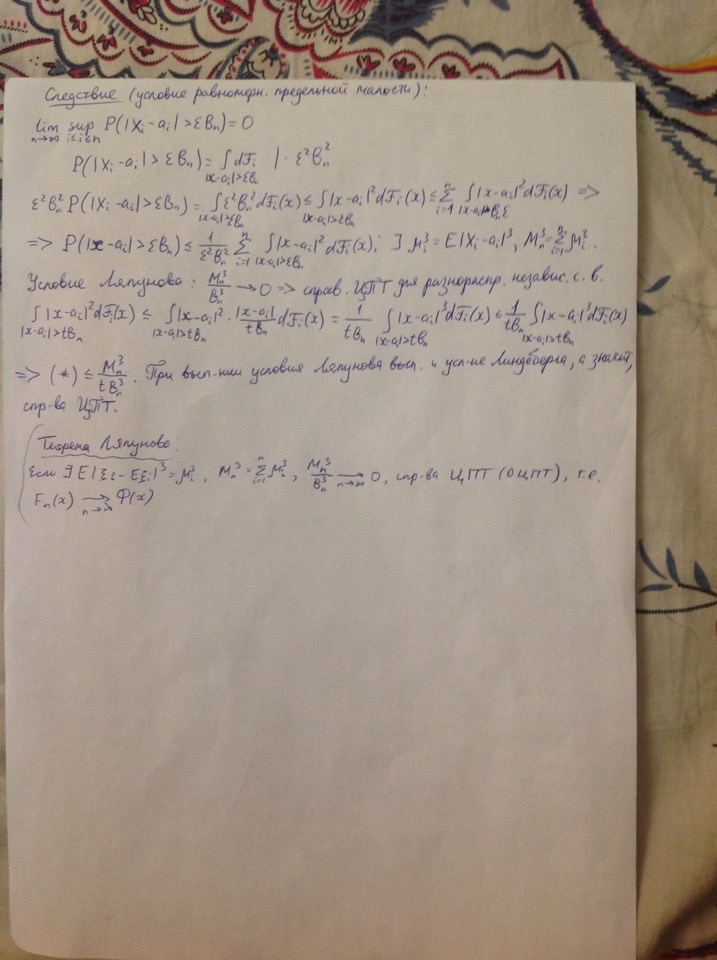 Следствие (условие равномерн. предельной малости):
lim sup P(|Xᵢ-aᵢ|>εBₙ)=0
n→∞ 1≤i≤n
P(|Xᵢ-aᵢ|>εBₙ)=∫dFᵢ |·ε²Bₙ²
|x-aᵢ|>εBₙ
ε²Bₙ²P(|Xᵢ-aᵢ|>εBₙ)=∫ε²Bₙ²dFᵢ(x)≤∫|x-aᵢ|²dFᵢ(x)≤∑ⁿᵢ₌₁∫|x-aᵢ|²dFᵢ(x)=>
|x-aᵢ|>εBₙ |x-aᵢ|>εBₙ |x-aᵢ|>Bₙε
=> P(|x-aᵢ|>εBₙ)≤1/(ε²Bₙ²)∑ⁿᵢ₌₁∫|x-aᵢ|²dFᵢ(x); ∃ μᵢ³=E|Xᵢ-aᵢ|³, Mₙ³=∑ⁿᵢ₌₁μᵢ³.
|x-aᵢ|>εBₙ
Условие Ляпунова: Mₙ³/Bₙ³→0 => справ. ЦПТ для разнораспр. независ. с. в.
∫|x-aᵢ|²dFᵢ(x)≤∫|x-aᵢ|²·|x-aᵢ|/(tBₙ)dFᵢ(x)=1/(tBₙ)∫|x-aᵢ|³dFᵢ(x)≤1/(tBₙ)∫|x-aᵢ|³dFᵢ(x)
|x-aᵢ|>tBₙ |x-aᵢ|>tBₙ |x-aᵢ|>tBₙ |x-aᵢ|>tBₙ
=> (*)≤Mₙ³/(tBₙ³). При вып-нии условия Ляпунова вып. и усл-ие Линдеберга, а значит,
спр-ва ЦПТ.
Теорема Ляпунова.
Если ∃ E|ξᵢ-Eξᵢ|³=μᵢ³, Mₙ³=∑ⁿᵢ₌₁μᵢ³, Mₙ³/Bₙ³ →ₙ→∞ 0, спр-ва ЦПТ (ОЦПТ), т.е.
Fₙ(x) →ₙ→∞ Φ(x)